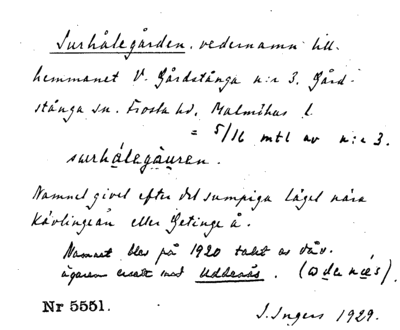 Surhålegården, vedernamn till
hemmanet V. Gårdstånga n:r 3. Gård-
stånga sn. Frosta hd, Malmöhus l.
= 5/16 mtl av n:r 3.
surhålegåuren.
Namnet givet efter det sumpiga läget nära
Kävlingeån eller Getinge å.
Namnet blev på 1920 talet av dåv.
ägaren ersatt med Uddanäs.
Nr 5551.
I. Ingers 1929.